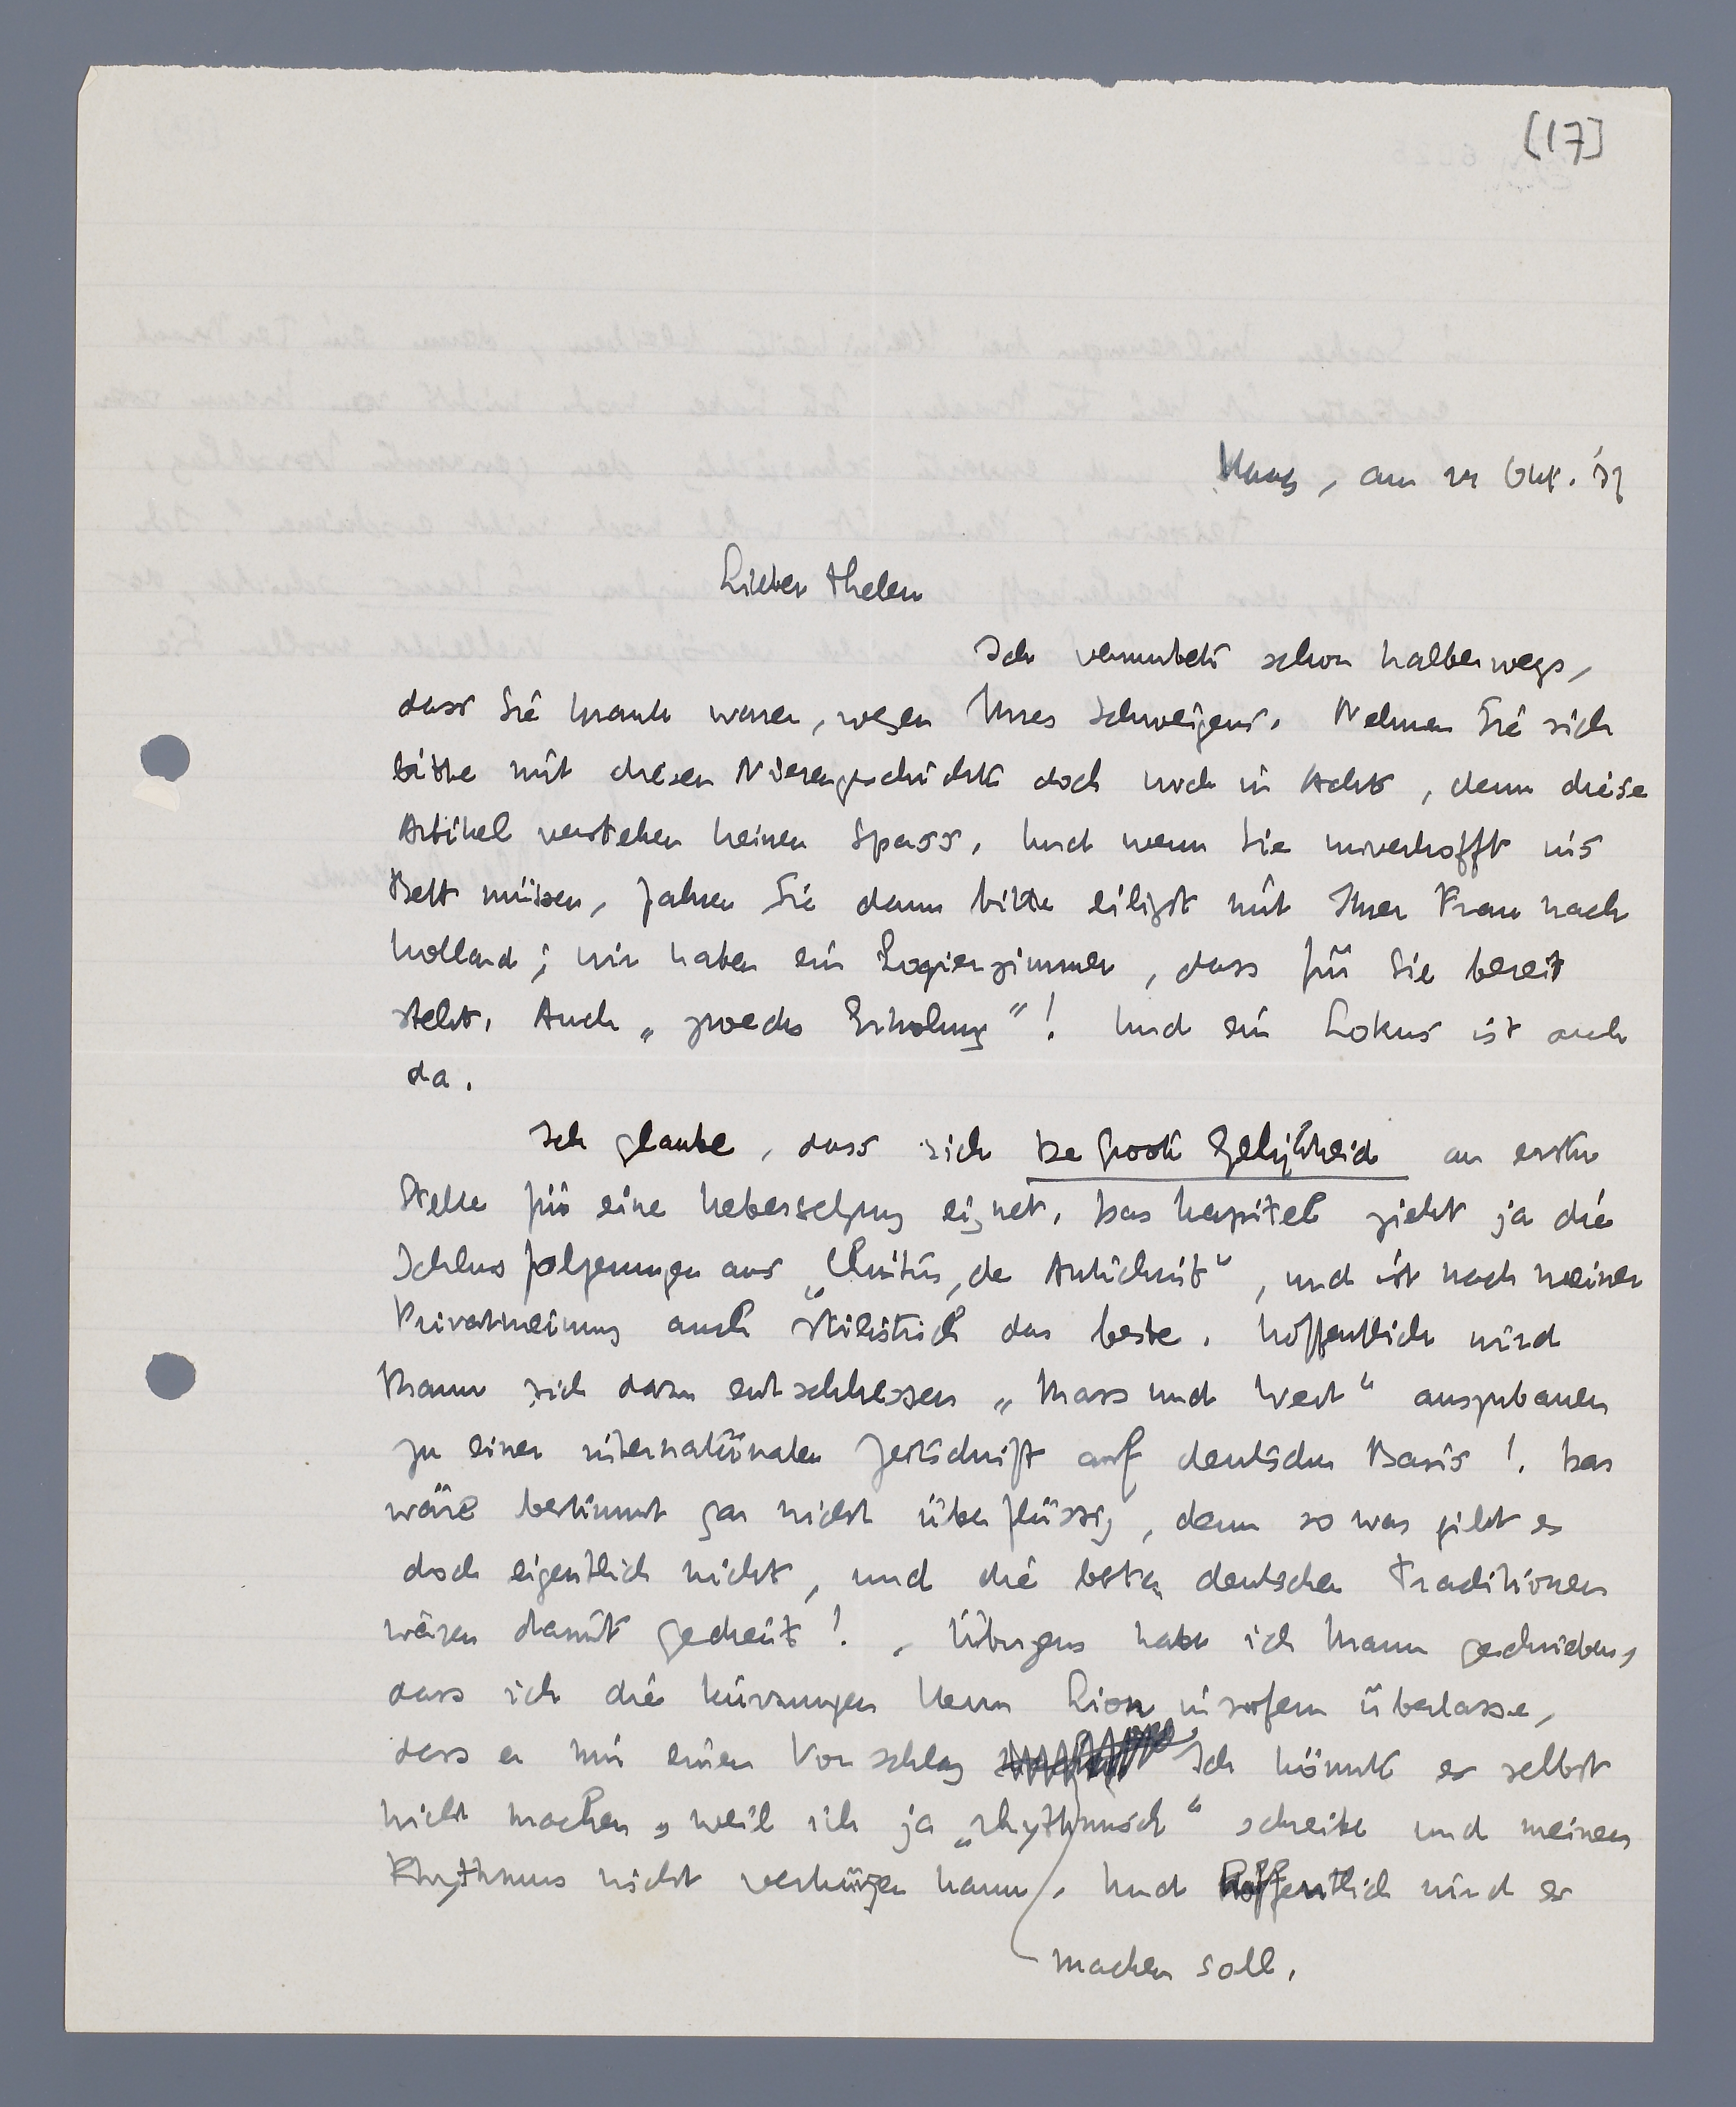 [17]
Haag, am 21 Okt. '37
Lieber Thelen
Ich vermutete schon halberwegs,
dass Sie krank waren, wegen Ihres Schweigens. Nehmen Sie sich
bitte mit diesen Nierengeschichte doch noch in Acht, denn diese
Artikel verstehen keinen Spass. Und wenn Sie unverhofft ins
Bett müssen, fahren Sie dann bitte eiligst mit Ihrer Frau nach
Holland; wir haben ein Logierzimmer, dass für Sie bereit
steht. Auch „zwecks Erholung"! Und ein Lokus ist auch
da.
Ich glaube, dass sich De Groote Gelijkheid an erster
Stelle für eine Uebersetzung eignet. Das Kapitel zieht ja die
Schlussfolgerungen aus „Christus, de Antichrist", und ist nach meiner
Privatmeinung auch stilistisch das beste. Hoffentlich wird
Mann sich dazu entschliessen „Mass und Wert" auszubauen
zu einer internationalen Zeitschrift auf deutscher Basis!. Das
wäre bestimmt gar nicht überflüssig, denn so was gibt es
doch eigentlich nicht, und die besten deutschen Traditionen
wären damit gedient!. Übrigens habe ich Mann geschrieben,
dass ich die Kürzungen Herrn Lion insofern überlasse,
dass er mir einen Vorschlag Ich könnte es selbst
nicht machen, weil ich ja „rhythmisch" schreibe und meinen
Rhythmus nicht verkürzen kann. Und hoffentlich wird er
machen soll.